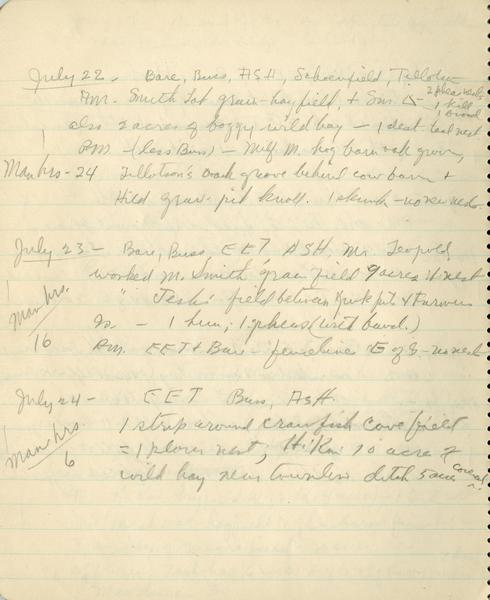 July 22. Bare, Buss, ASH, Schoenfield, Tillotson
AM. Smith Lot grass-hayfield, + Sms 2 pheas nests
1 kill
1 brood
also 2 acres of boggy wild hay - 1 dest. nest
PM - (less Buss) - Milf M. hog barn oak grove,
Man hrs - 24 Tillotson's oak grove behind cow barn +
Hild gravel pit knoll. 1 skunk - no new nests
July 23 - Bare, Buss, EET, ASH, Mr. Leopold,
worked M. Smith grain field 9 acres nest
" field between & Furrow
Man hrs. - 1 hun; 1 pheas (with band.)
16 P.M. EET + Bare - fenceline E of G - no nest
July 24 - EET Buss, ASH.
1 strip around crawfish cove field
Man hrs. = 1 plover nest; 10 acre of
6 wild hay near townline ditch 5 acres